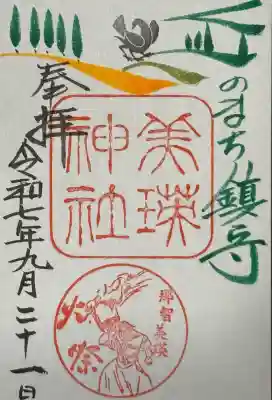 丘のまち鎮守
奉拝
美瑛
神社
令和七年九月二十一日
那智美瑛
火祭